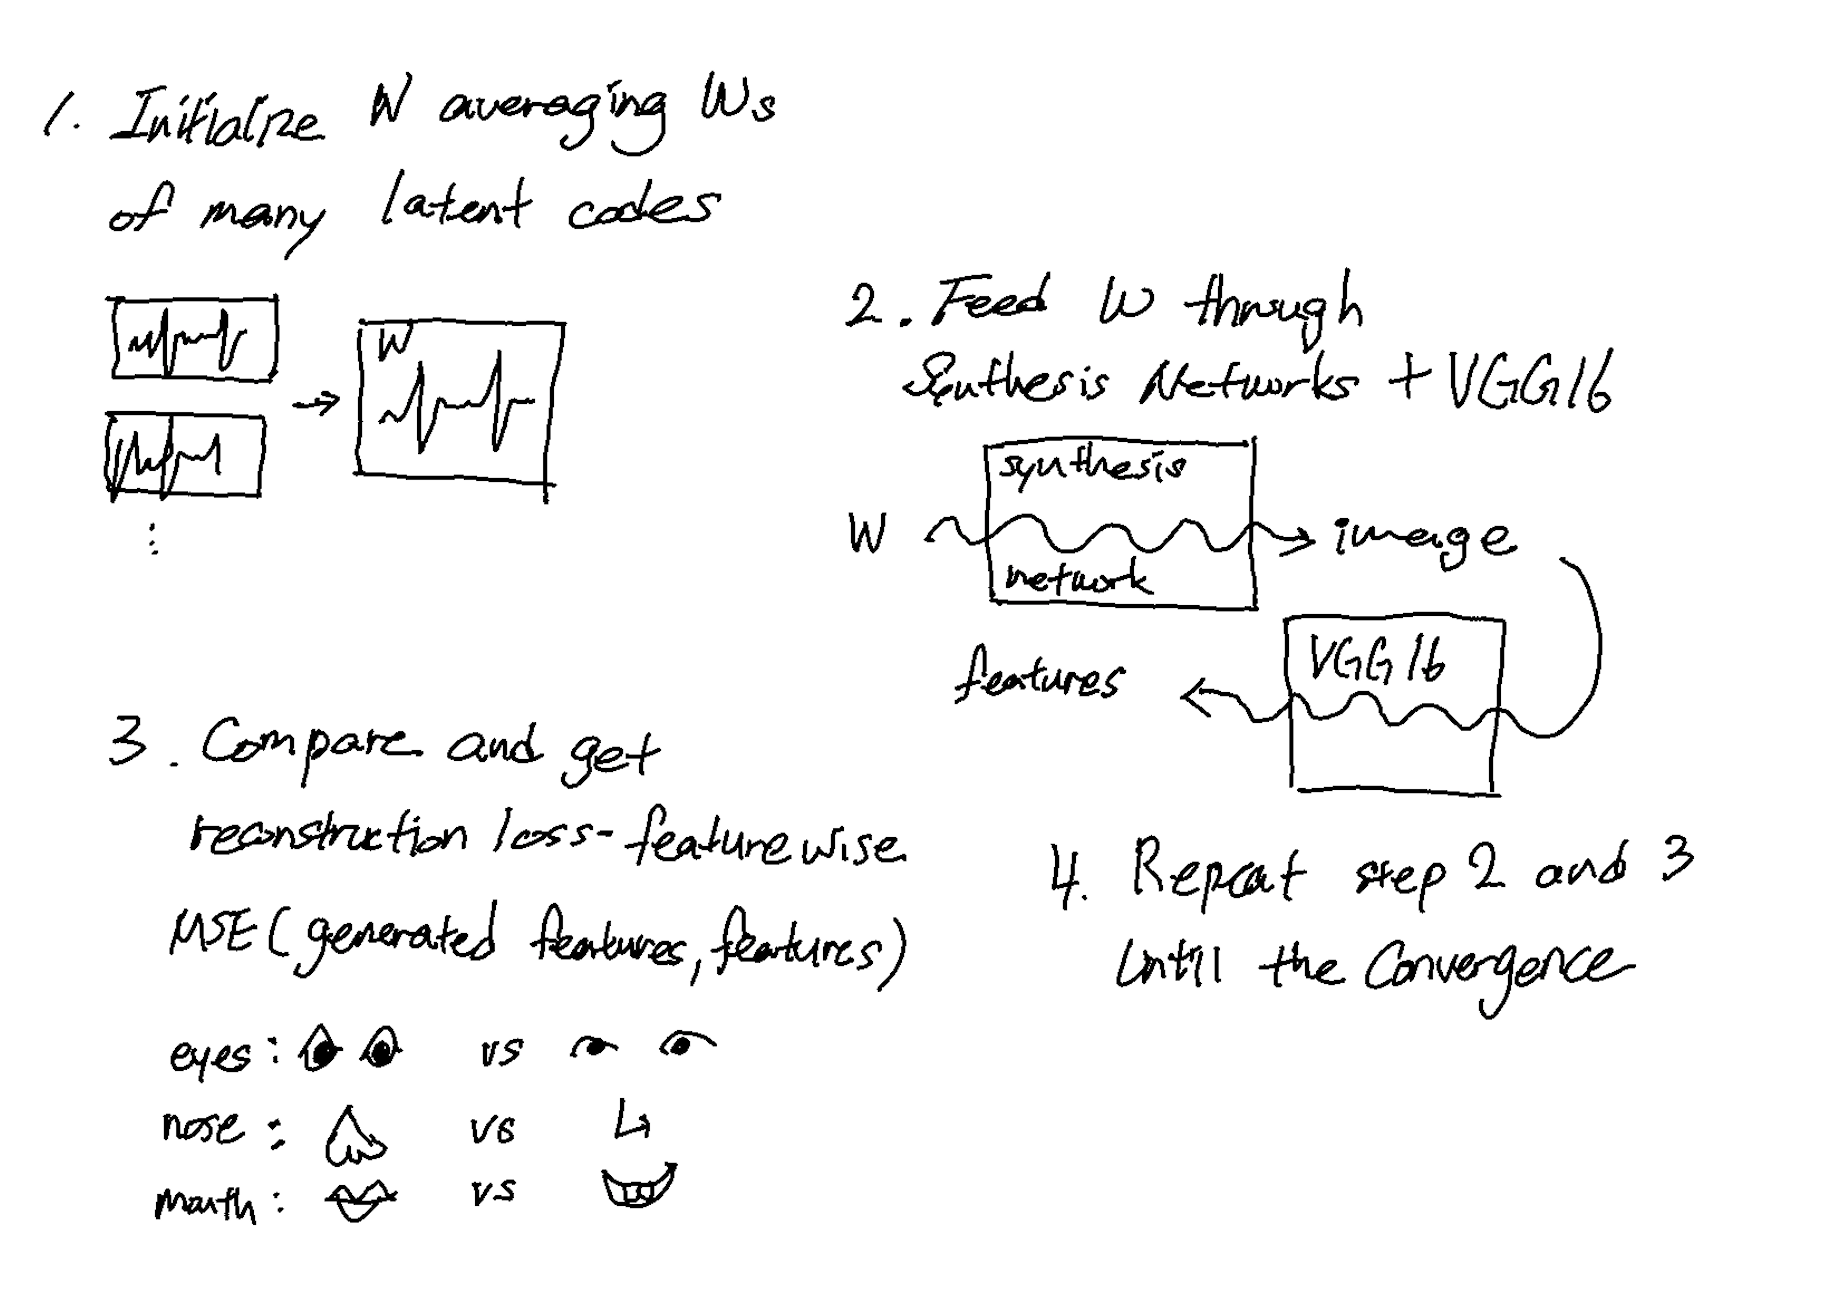 1. Initialize W averaging Ws
of many latent codes
W
2. Feed W through
Synthesis Networks + VGG16
synthesis
W image
network
VGG16
features
3. Compare and get
reconstruction loss - featurewise
MSE(generated features, features)
eyes: vs
nose: vs
mouth: vs
4. Repeat step 2 and 3
Untill the Convergence